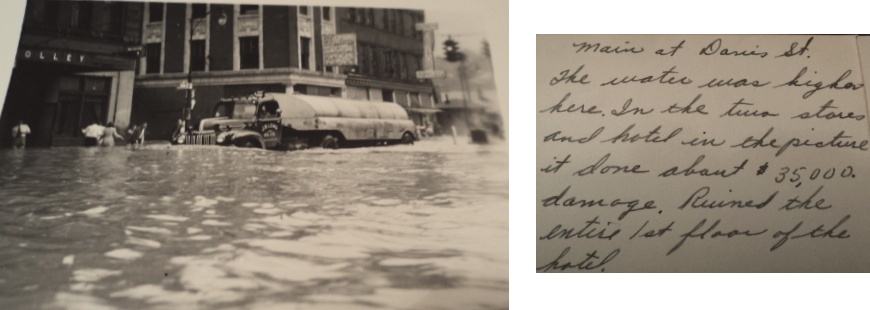 OLLEY
Main at Davis St.
The water was higher
here. In the two stores
and hotel in the picture
it done about $35,000.
damage. Ruined the
entire 1st floor of the
hotel.